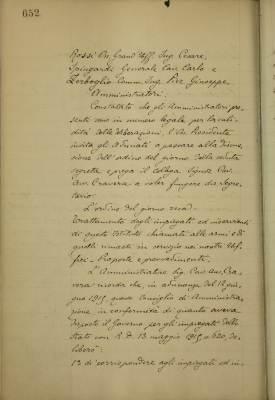 652
Rossi On. Grand'Uff. Ing. Cesare,
Spingardi Generale Cav. Carlo e
Zerboglio Comm. Ing. Pier Giuseppe
Amministratori.
Constatato che gli Amministratori pre-
senti sono in numero legale per la vali-
dità delle deliberazioni, l'Ill. Presidente
invita gli adunati a passare alla discus-
sione dell'ordine del giorno della seduta
segreta e prega il collega Signor Cav.
Avv. Cravera a voler fungere da Segre-
tario.
L'ordine del giorno reca:
Trattamento degli impiegati ed inservienti
di questo Istituto chiamati alle armi e di
quelli rimasti in servizio nei nostri Uf-
fici - Proposte e provvedimenti.
L'Amministratore Sig. Cav. Avv. Cra-
vera ricorda che, in adunanza del 12 giu-
gno 1915, questo Consiglio di Amministra-
zione, in conformità di quanto aveva
disposto il Governo, per gli impiegati dello
Stato con R. D. 13 maggio 1915 n. 620, de-
liberò:
1º di corrispondere agli impiegati ed in-